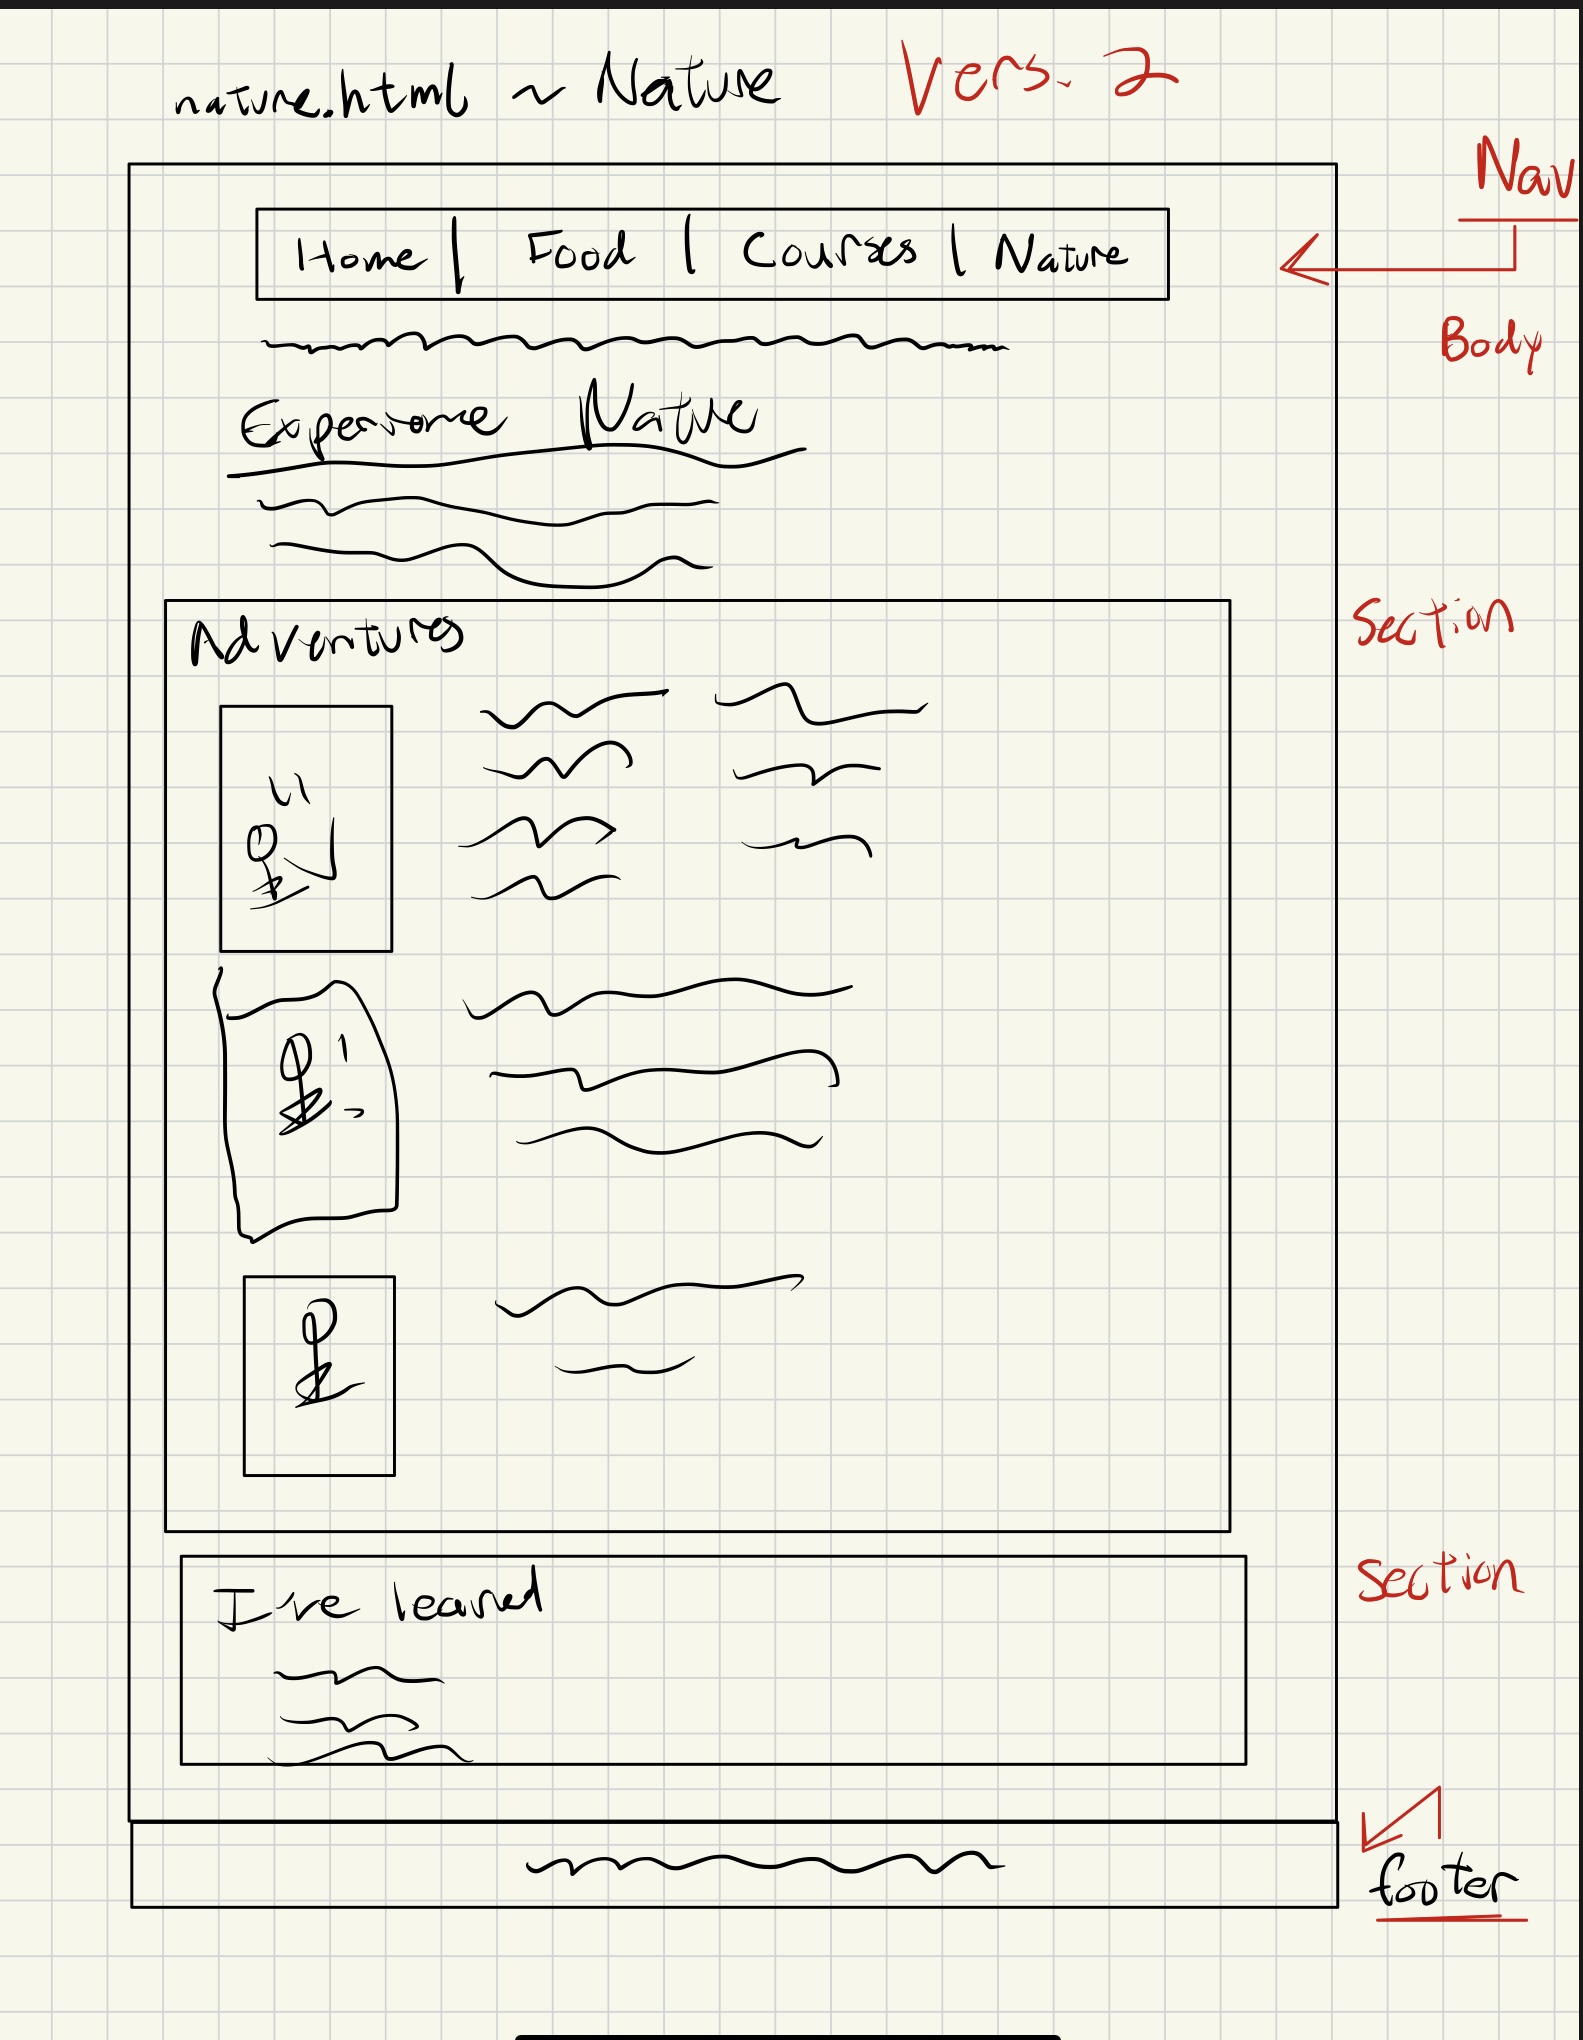 nature.html ~ Nature Vers. 2
Nav
Home | Food | Courses | Nature
Body
Experience Nature
Section
Adventures
Section
I've learned
footer